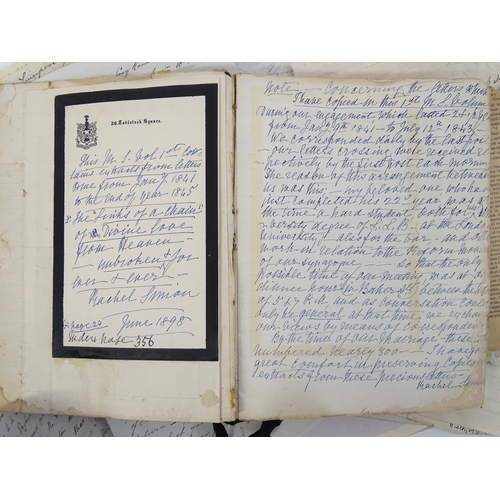 36, Tavistock Square.
This M.S. Vol 1st con-
tains extracts from letters
from Jan 7. 1841
to the end of year 1845
The "links of a chain"
of Divine love
from Heaven
unbroken & for
ever & ever
Rachel Simon
page 24 June 1898
Enders page 356
Note Concerning the letters
I have copied in this 1st M.S. volume
During our engagement which lasted 2½
from Jany 7th 1841 to July 12th 1843
We corresponded daily by the last post
our letters crossing, to be received res
pectively by the first post each morning
The reason of this arrangement between
us was this:- my beloved one who has
just completed his 22nd year was at
the time a hard student both for
versity degree of L.L.B. at the London
University, also for the Bar and
work in relation to the Reform move
of our synagogue. So that the only
possible time of our meeting was at a
chance hour in Baker St. between the
of 5 & 7 P.M. and as conversation could
only be general at that time, we exchan
our views by means of correspondence
By the time of our marriage these
numbered nearly 800 I have
great comfort in preserving copies
extracts from these precious letters
Rachel Simon